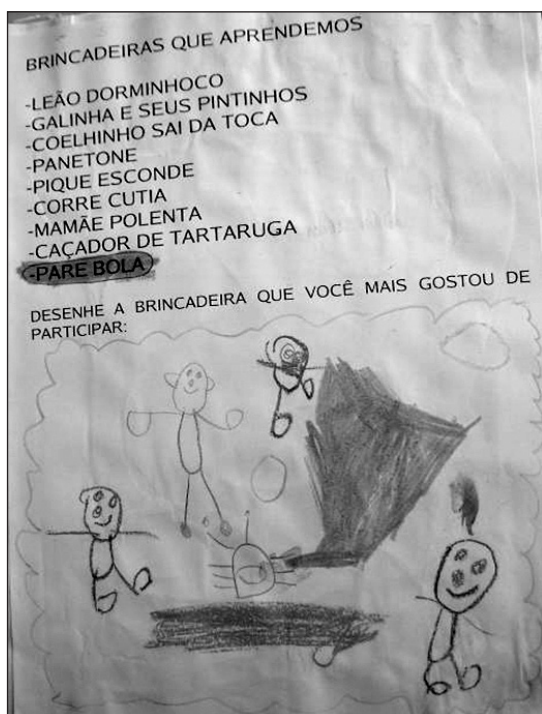 BRINCADEIRAS QUE APRENDEMOS
-LEÃO DORMINHOCO
-GALINHA E SEUS PINTINHOS
-COELHINHO SAI DA TOCA
-PANETONE
-PIQUE ESCONDE
-CORRE CUTIA
-MAMÃE POLENTA
-CAÇADOR DE TARTARUGA
-PARE BOLA
DESENHE A BRINCADEIRA QUE VOCÊ MAIS GOSTOU DE
PARTICIPAR: